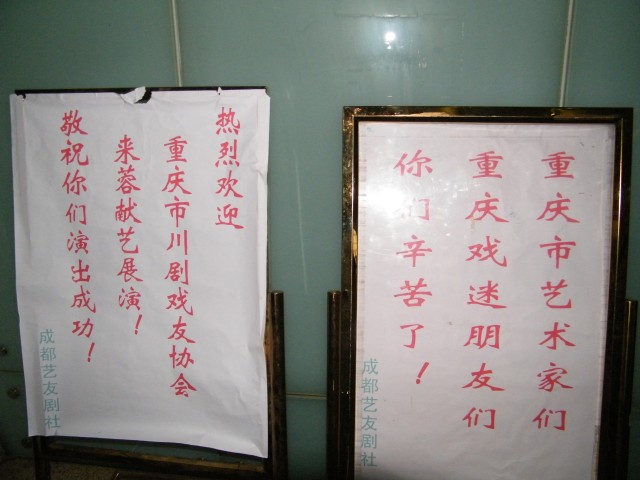 热烈欢迎
重庆市川剧戏友协会
来蓉献艺展演！
敬祝你们演出成功！
成都艺友剧社
重庆市艺术家们
重庆戏迷朋友们
你们辛苦了！
成都艺友剧社